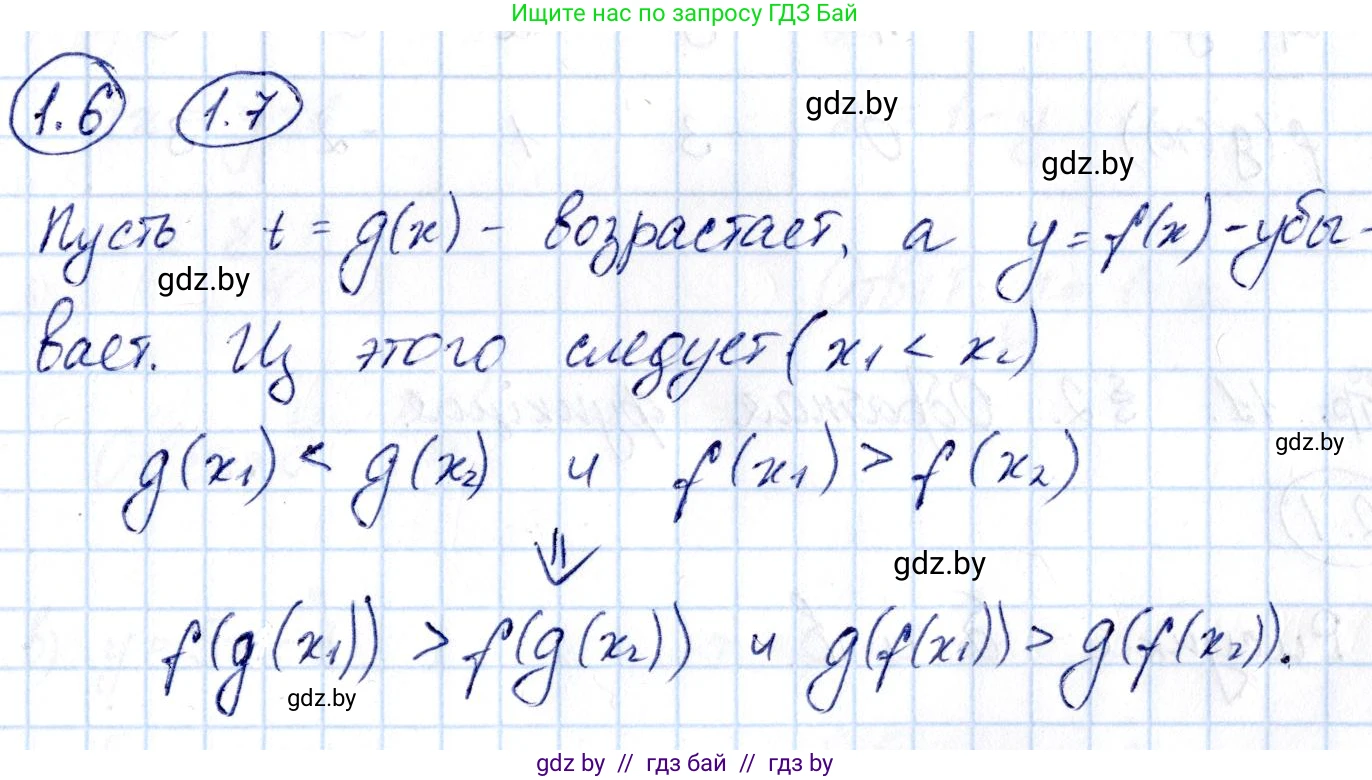 Ищите нас по запросу ГДЗ Бай
1.6 1.7
gdz.by
gdz.by
Пусть t = g(x) - возрастает, а y = f(x) - убы-
gdz.by
вает. Из этого следует (x₁ < x₂)
g(x₁) < g(x₂) и f(x₁) > f(x₂)
gdz.by
⇓
gdz.by
f(g(x₁)) > f(g(x₂)) и g(f(x₁)) > g(f(x₂)).
gdz.by
gdz by // гдз бай // гдз by